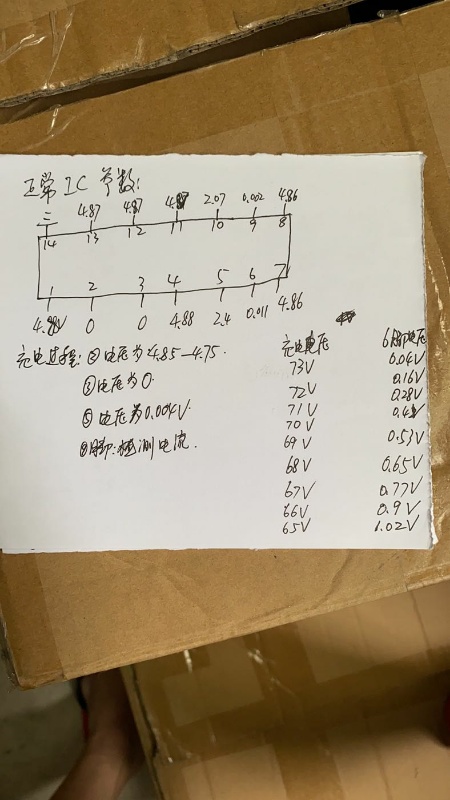 正常 IC 参数:
4.87 4.87 4.87 2.07 0.002 4.86
14 13 12 11 10 9 8
1 2 3 4 5 6 7
4.98V 0 0 4.88 2.4 0.011 4.86
充电过程: ② 电压为 4.85—4.75.
③ 电压为 0.
⑤ 电压为 0.004V.
⑥脚: 检测电流.
充电电压 6脚电压
73V 0.04V
0.16V
72V 0.28V
71V 0.4V
70V
69V 0.53V
68V 0.65V
67V 0.77V
66V 0.9V
65V 1.02V